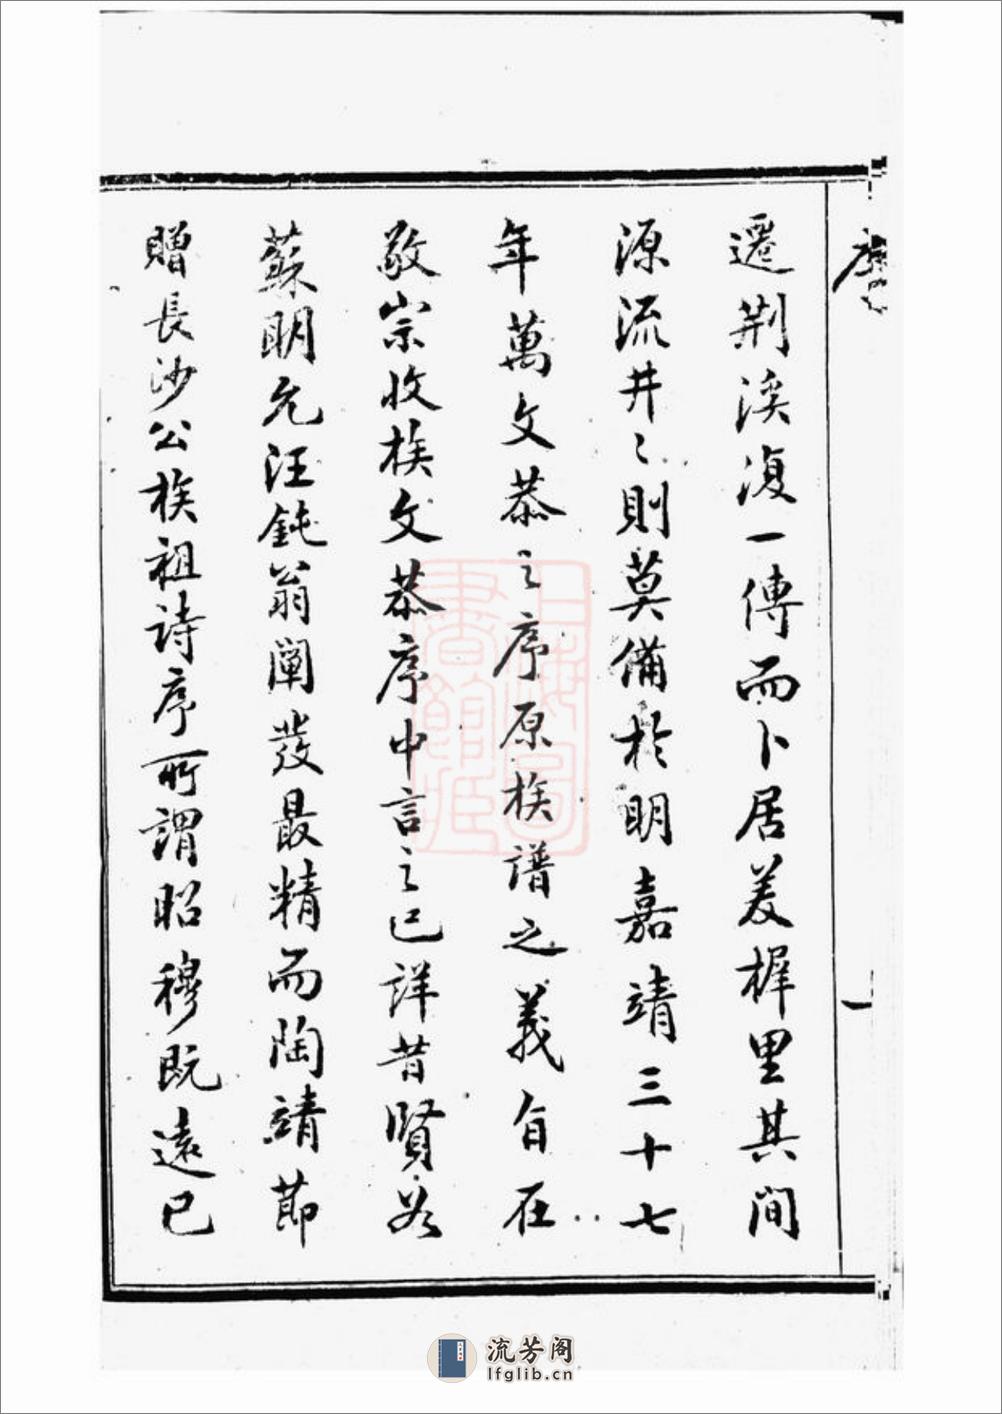 序
一
遷荆溪復一傳而卜居茭樨里其間
源流井〻則莫備於明嘉靖三十七
年萬文恭之序原族譜之義自在
敬宗收族文恭序中言之已詳昔賢若
蘇明允汪鈍翁闡發最精而陶靖節
贈長沙公族祖詩序所謂昭穆既遠已
上海圖書館藏
流芳阁
lfglib.cn